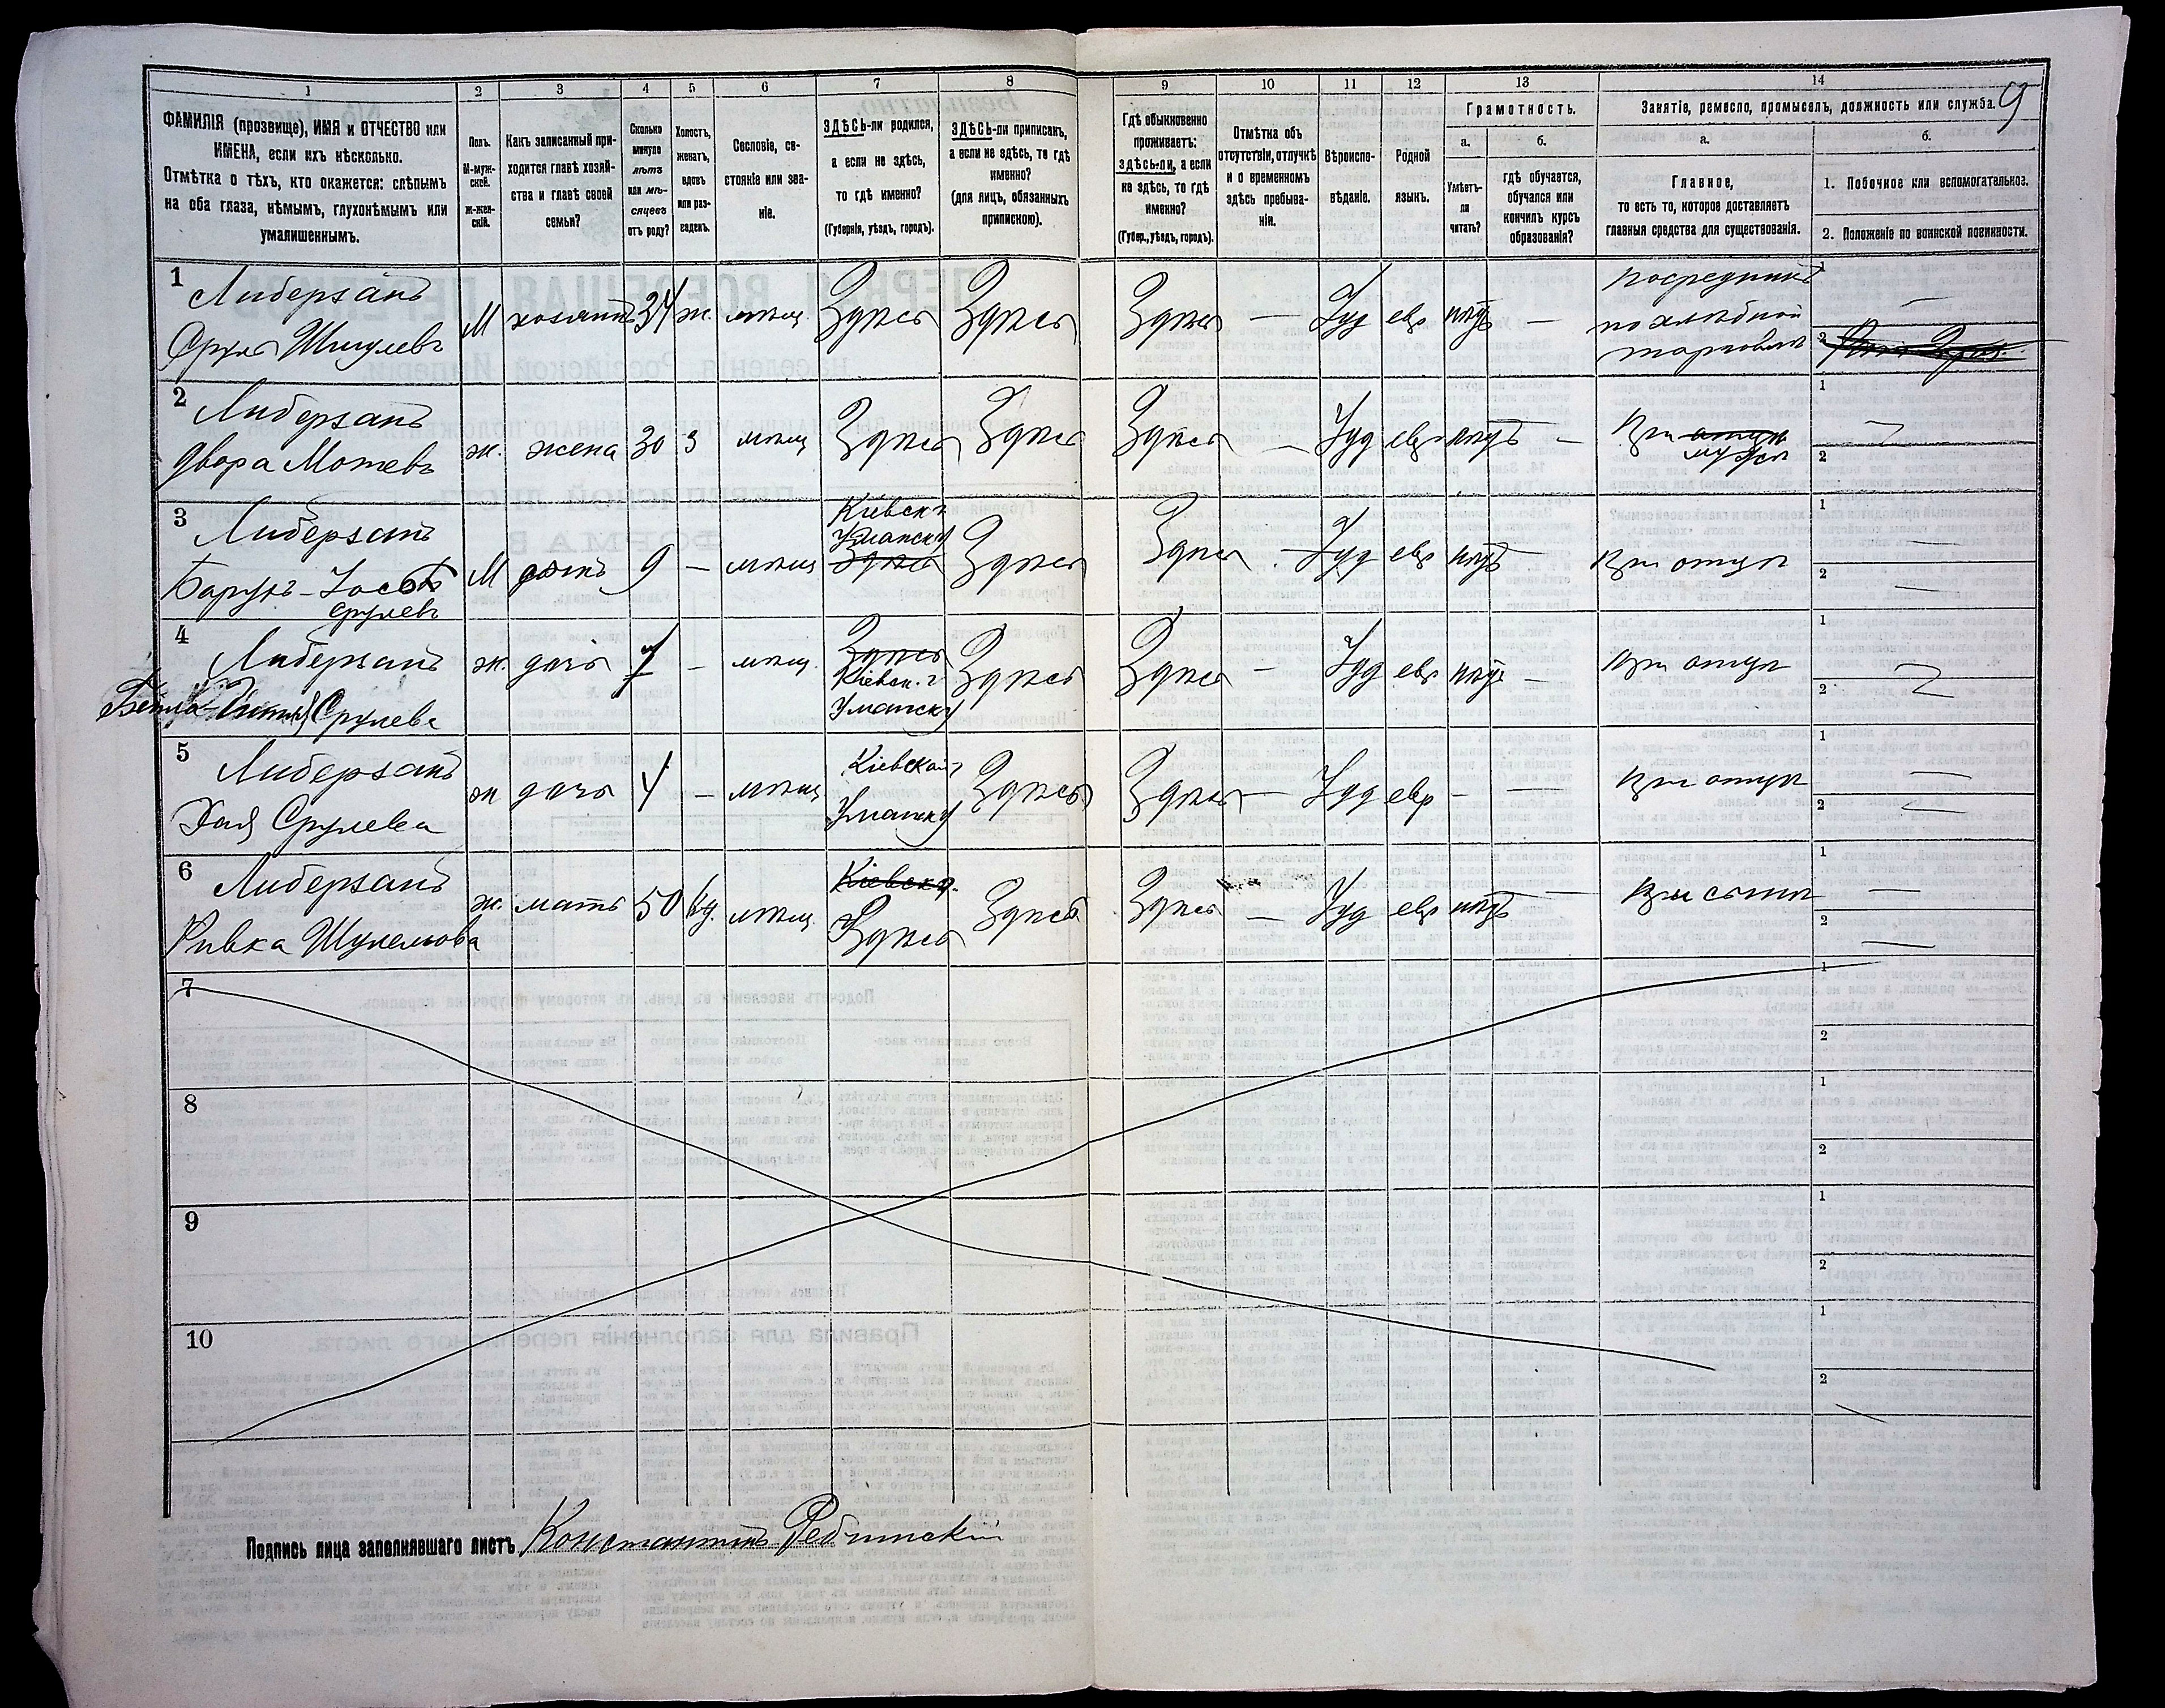 1 2 3 4 5 6 7 8 9 10 11 12 13 14
9
ФАМИЛІЯ (прозвище), ИМЯ и ОТЧЕСТВО или
ИМЕНА, если ихъ нѣсколько.
Отмѣтка о тѣхъ, кто окажется: слѣпымъ
на оба глаза, нѣмымъ, глухонѣмымъ или
умалишеннымъ.
Полъ.
М-муж-
ской.
ж-жен-
скій.
Какъ записанный при-
ходится главѣ хозяй-
ства и главѣ своей
семьи?
Сколько
минуло
лѣтъ
или мѣ-
сяцевъ
отъ роду?
Холостъ,
женатъ,
вдовъ
или раз-
веденъ.
Сословіе, со-
стояніе или зва-
ніе.
ЗДѢСЬ-ли родился,
а если не здѣсь,
то гдѣ именно?
(Губернія, уѣздъ, городъ).
ЗДѢСЬ-ли приписанъ,
а если не здѣсь, то гдѣ
именно?
(для лицъ, обязанныхъ
припискою).
Гдѣ обыкновенно
проживаетъ:
здѣсь-ли, а если
не здѣсь, то гдѣ
именно?
(Губер., уѣздъ, городъ).
Отмѣтка объ
отсутствіи, отлучкѣ
и о временномъ
здѣсь пребыва-
ніи.
Вѣроиспо-
вѣданіе.
Родной
языкъ.
Грамотность.
а.
Умѣетъ-
ли
читать?
б.
гдѣ обучается,
обучался или
кончилъ курсъ
образованія?
Занятіе, ремесло, промыселъ, должность или служба.
а.
Главное,
то есть то, которое доставляетъ
главныя средства для существованія.
б.
1. Побочное или вспомогательное.
2. Положеніе по воинской повинности.
1 Либерзанъ
Сруль Шмулевъ
М хозяинъ 34 ж. мѣщ. Здѣсь Здѣсь Здѣсь — Іуд евр —
посредникъ
по хлѣбной
торговлѣ
1 —
2
2 Либерзанъ
Двора Мошевъ
ж. жена 30 з мѣщ Здѣсь Здѣсь Здѣсь — Іуд евр —
При отцѣ
мужѣ
1
2
3 Либерзанъ
Барухъ-Іосъ
Срулевъ
М сынъ 9 — мѣщ
Кіевск г
Уманск у
Здѣсь
Здѣсь Здѣсь — Іуд евр
При отцѣ
1 —
2 —
4 Либерзанъ
Срулева
ж. дочь 7 — мѣщ.
Здѣсь
Кіевск. г
Уманск у
Здѣсь Здѣсь — Іуд евр —
При отцѣ
1
2
5 Либерзанъ
Хая Срулева
ж дочь 4 — мѣщ
Кіевской г
Уманск у
Здѣсь Здѣсь — Іуд евр — —
При отцѣ
1 —
2 —
6 Либерзанъ
Ривка Шулемова
ж. мать 50 вд. мѣщ.
Кіевск г.
Здѣсь
Здѣсь Здѣсь — Іуд евр —
При сынѣ
1 —
2 —
7
1
2
8
1
2
9
1
2
10
1
2
Подпись лица заполнявшаго листъ Константинъ